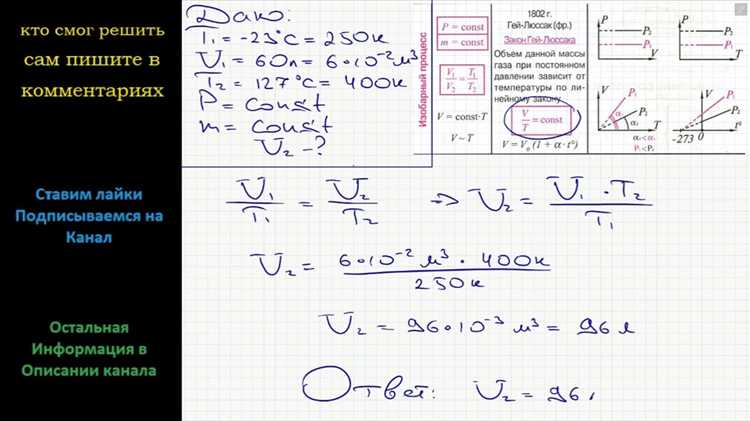 кто смог решить
сам пишите в
комментариях
Ставим лайки
Подписываемся на
Канал
Остальная
Информация в
Описании канала
Дано:
T₁ = -23°C = 250к
V₁ = 60л = 6·10⁻² м³
T₂ = 127°C = 400к
P = const
m = const
V₂ - ?
Изобарный процесс
P = const
m = const
V₁/V₂ = T₁/T₂
V = const·T
V ~ T
1802 г.
Гей-Люссак (фр.)
Закон Гей-Люссака
Объем данной массы
газа при постоянном
давлении зависит от
температуры по ли-
нейному закону
V/T = const
V = V₀ (1 + α · t°)
P
P₂
P₁
V
P
P₂
P₁
T
V
P₁
P₂
α₁
α₂
T
α₂<α₁
P₁<P₂
V
P₁
P₂
-273
0
t°
V₁/T₁ = V₂/T₂ => V₂ = V₁ · T₂/T₁
V₂ = 6·10⁻² м³ · 400к/250к
V₂ = 96·10⁻³ м³ = 96 л
Ответ: V₂ = 96